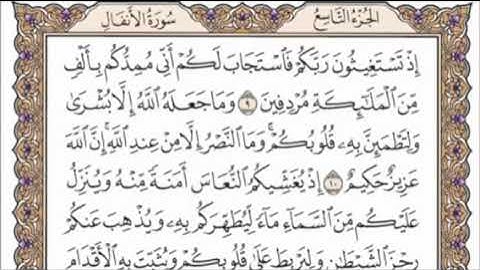 سُورَةُ الأَنفَالِ
الجُزءُ التَّاسِعُ
إِذْ تَسْتَغِيثُونَ رَبَّكُمْ فَٱسْتَجَابَ لَكُمْ أَنِّي مُمِدُّكُم بِأَلْفٍ
مِّنَ ٱلْمَلَٰٓئِكَةِ مُرْدِفِينَ ٩ وَمَا جَعَلَهُ ٱللَّهُ إِلَّا بُشْرَىٰ
وَلِتَطْمَئِنَّ بِهِۦ قُلُوبُكُمْ ۚ وَمَا ٱلنَّصْرُ إِلَّا مِنْ عِندِ ٱللَّهِ ۚ إِنَّ ٱللَّهَ
عَزِيزٌ حَكِيمٌ ١٠ إِذْ يُغَشِّيكُمُ ٱلنُّعَاسَ أَمَنَةً مِّنْهُ وَيُنَزِّلُ
عَلَيْكُم مِّنَ ٱلسَّمَآءِ مَآءً لِّيُطَهِّرَكُم بِهِۦ وَيُذْهِبَ عَنكُمْ
رِجْزَ ٱلشَّيْطَٰنِ وَلِيَرْبِطَ عَلَىٰ قُلُوبِكُمْ وَيُثَبِّتَ بِهِ ٱلْأَقْدَامَ